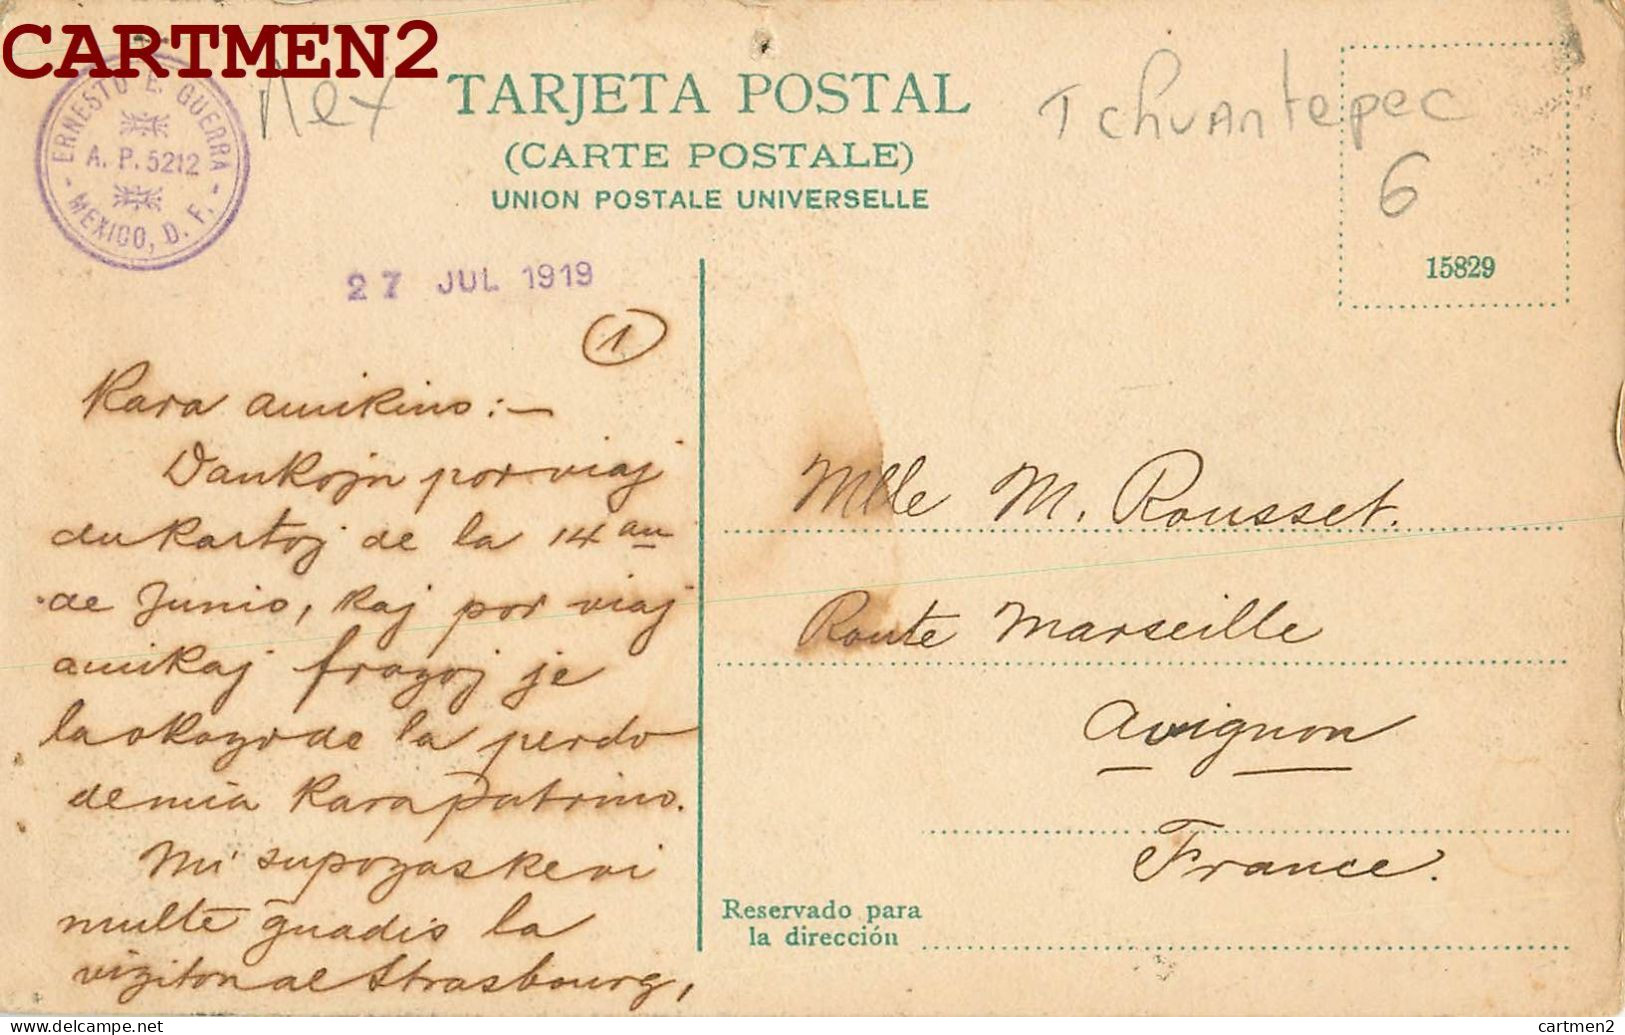 CARTMEN2
ERNESTO E. GUERRA
A. P. 5212
- MEXICO, D. F. -
Mex
TARJETA POSTAL
(CARTE POSTALE)
UNION POSTALE UNIVERSELLE
Tehuantepec
6
15829
27 JUL 1919
1
Kara amikino:—
Dankojn por viaj
du kartoj de la 14an
de Junio, kaj por viaj
amikaj frazoj je
la okazo de la perdo
de mia kara patrino.
Mi supozas ke vi
multe ĝuadis la
viziton al Strasbourg,
Mlle M. Rousset.
Route Marseille
Avignon
France.
Reservado para
la dirección
cartmen2